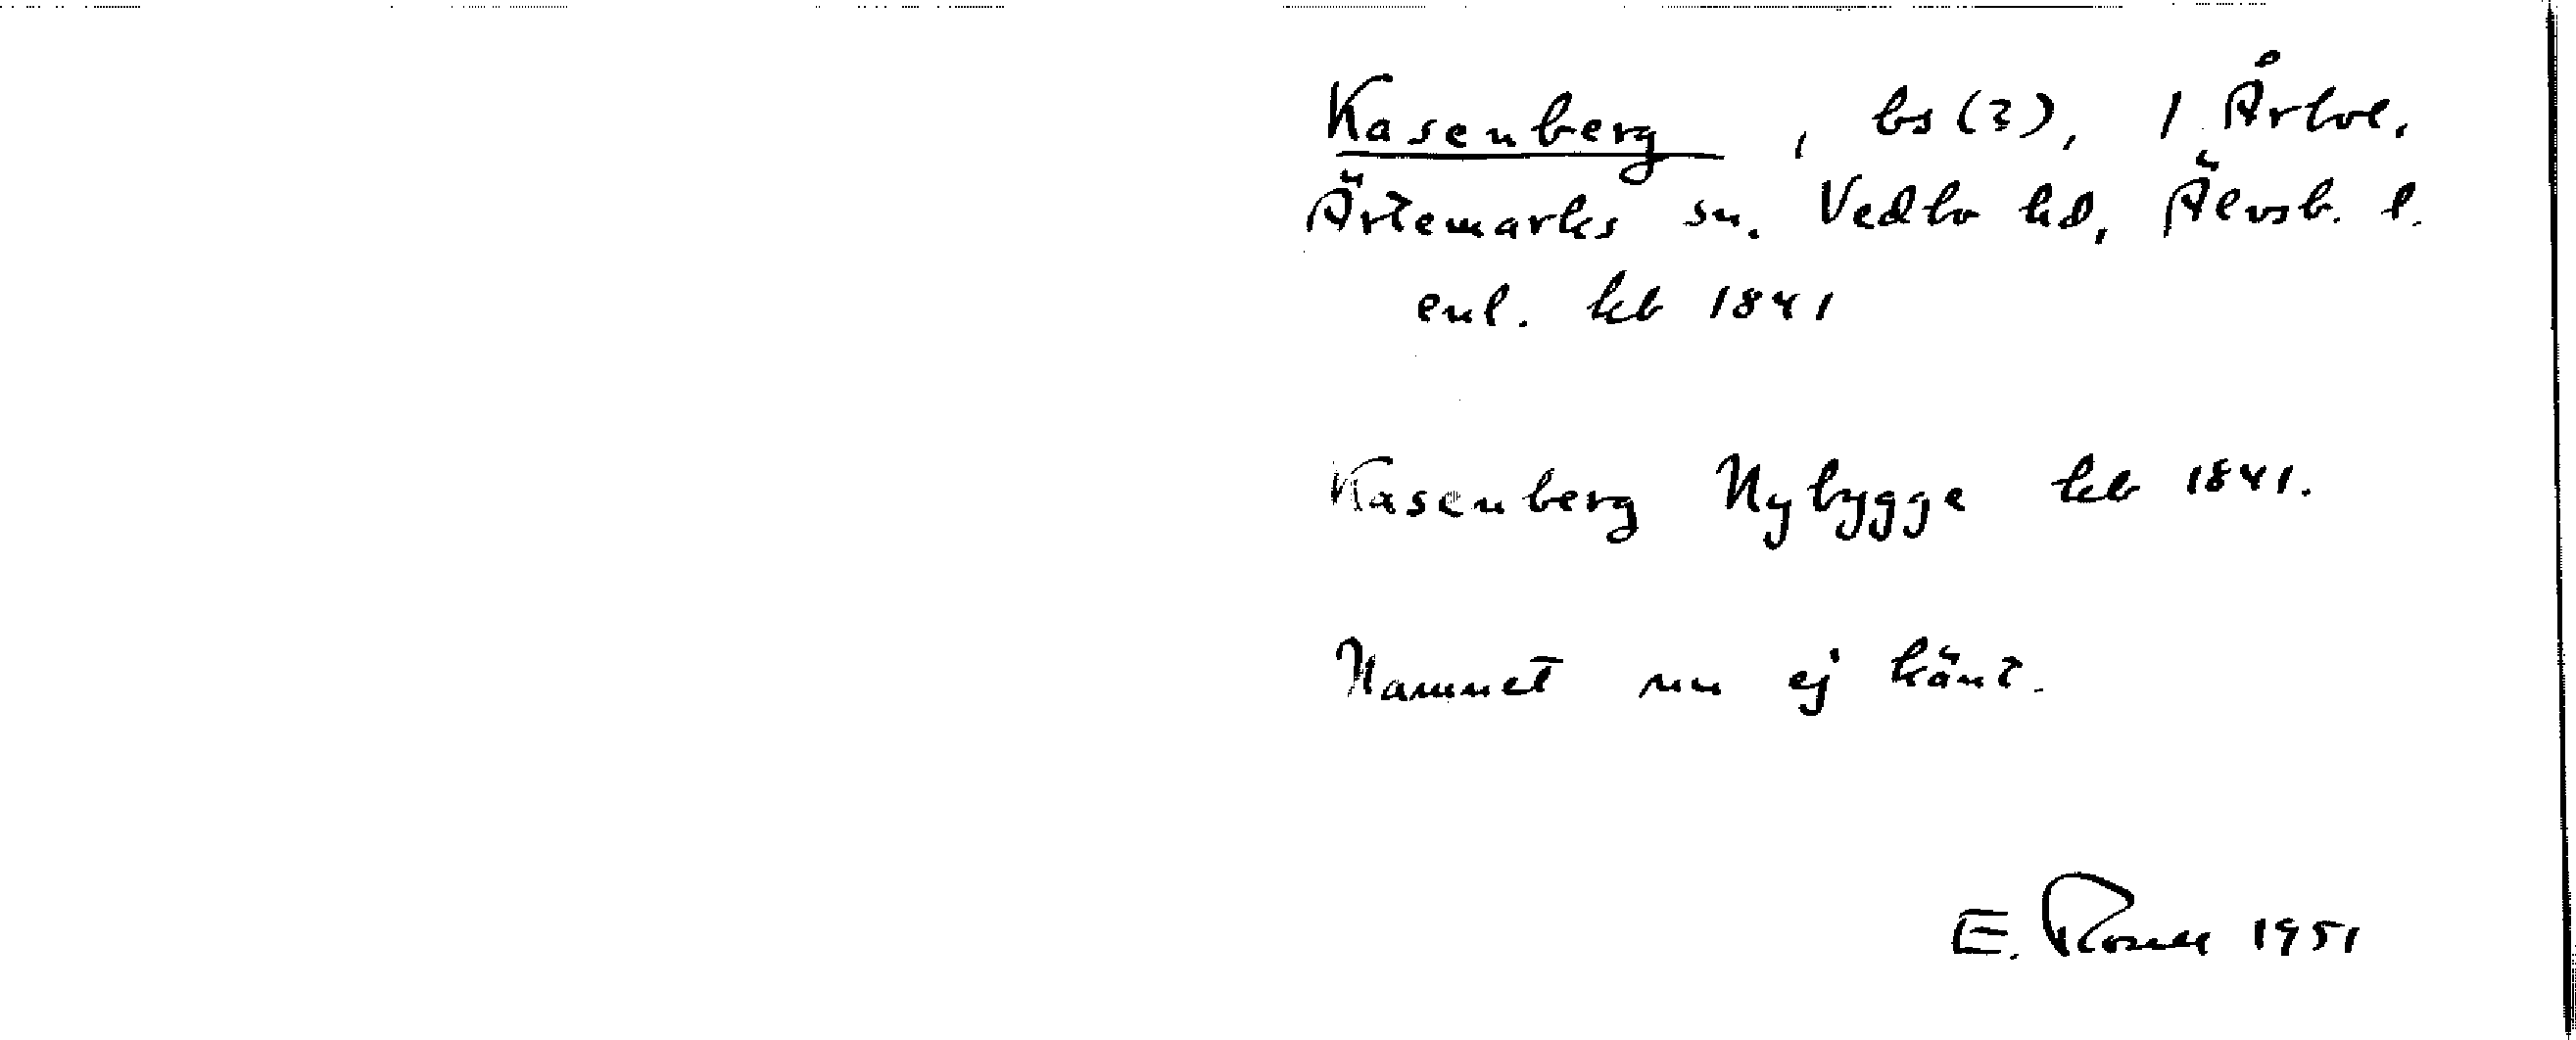 Kasenberg, bs (?), 1 Årbol.
Ärtemarks sn. Vedbo hd, Älvsb. l.
enl. kb 1841
Kasenberg Nybygge kb 1841.
Namnet nu ej känt.
E. 1951